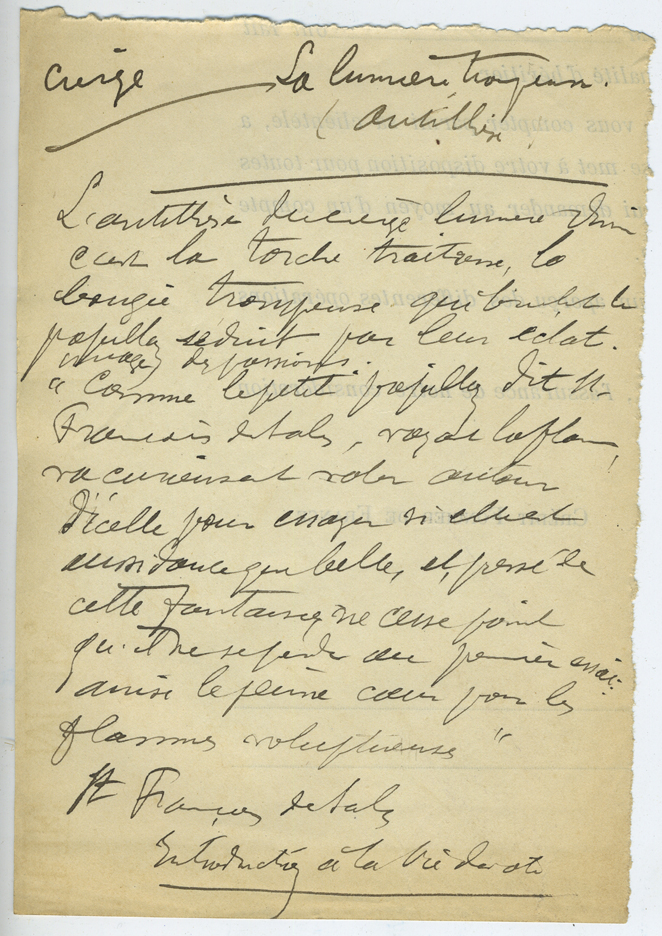 cierge La lumière trompeuse.
(antithèse
L'antithèse du cierge lumière divine
c'est la torche traitresse, la
bougie trompeuse qui brûle le
papillon séduit par leur éclat.
images des passions.
"Comme le petit papillon, dit St
François de Sales, voyant la flamme,
va curieusement voler autour
d'icelle pour essayer si elle est
aussi douce que belle, et, pressé de
cette fantaisie, ne cesse point
qu'il ne se perde au premier essai.
ainsi le jeune cœur pour les
flammes voluptueuses"
St François de Sales
Introduction à la Vie dévote